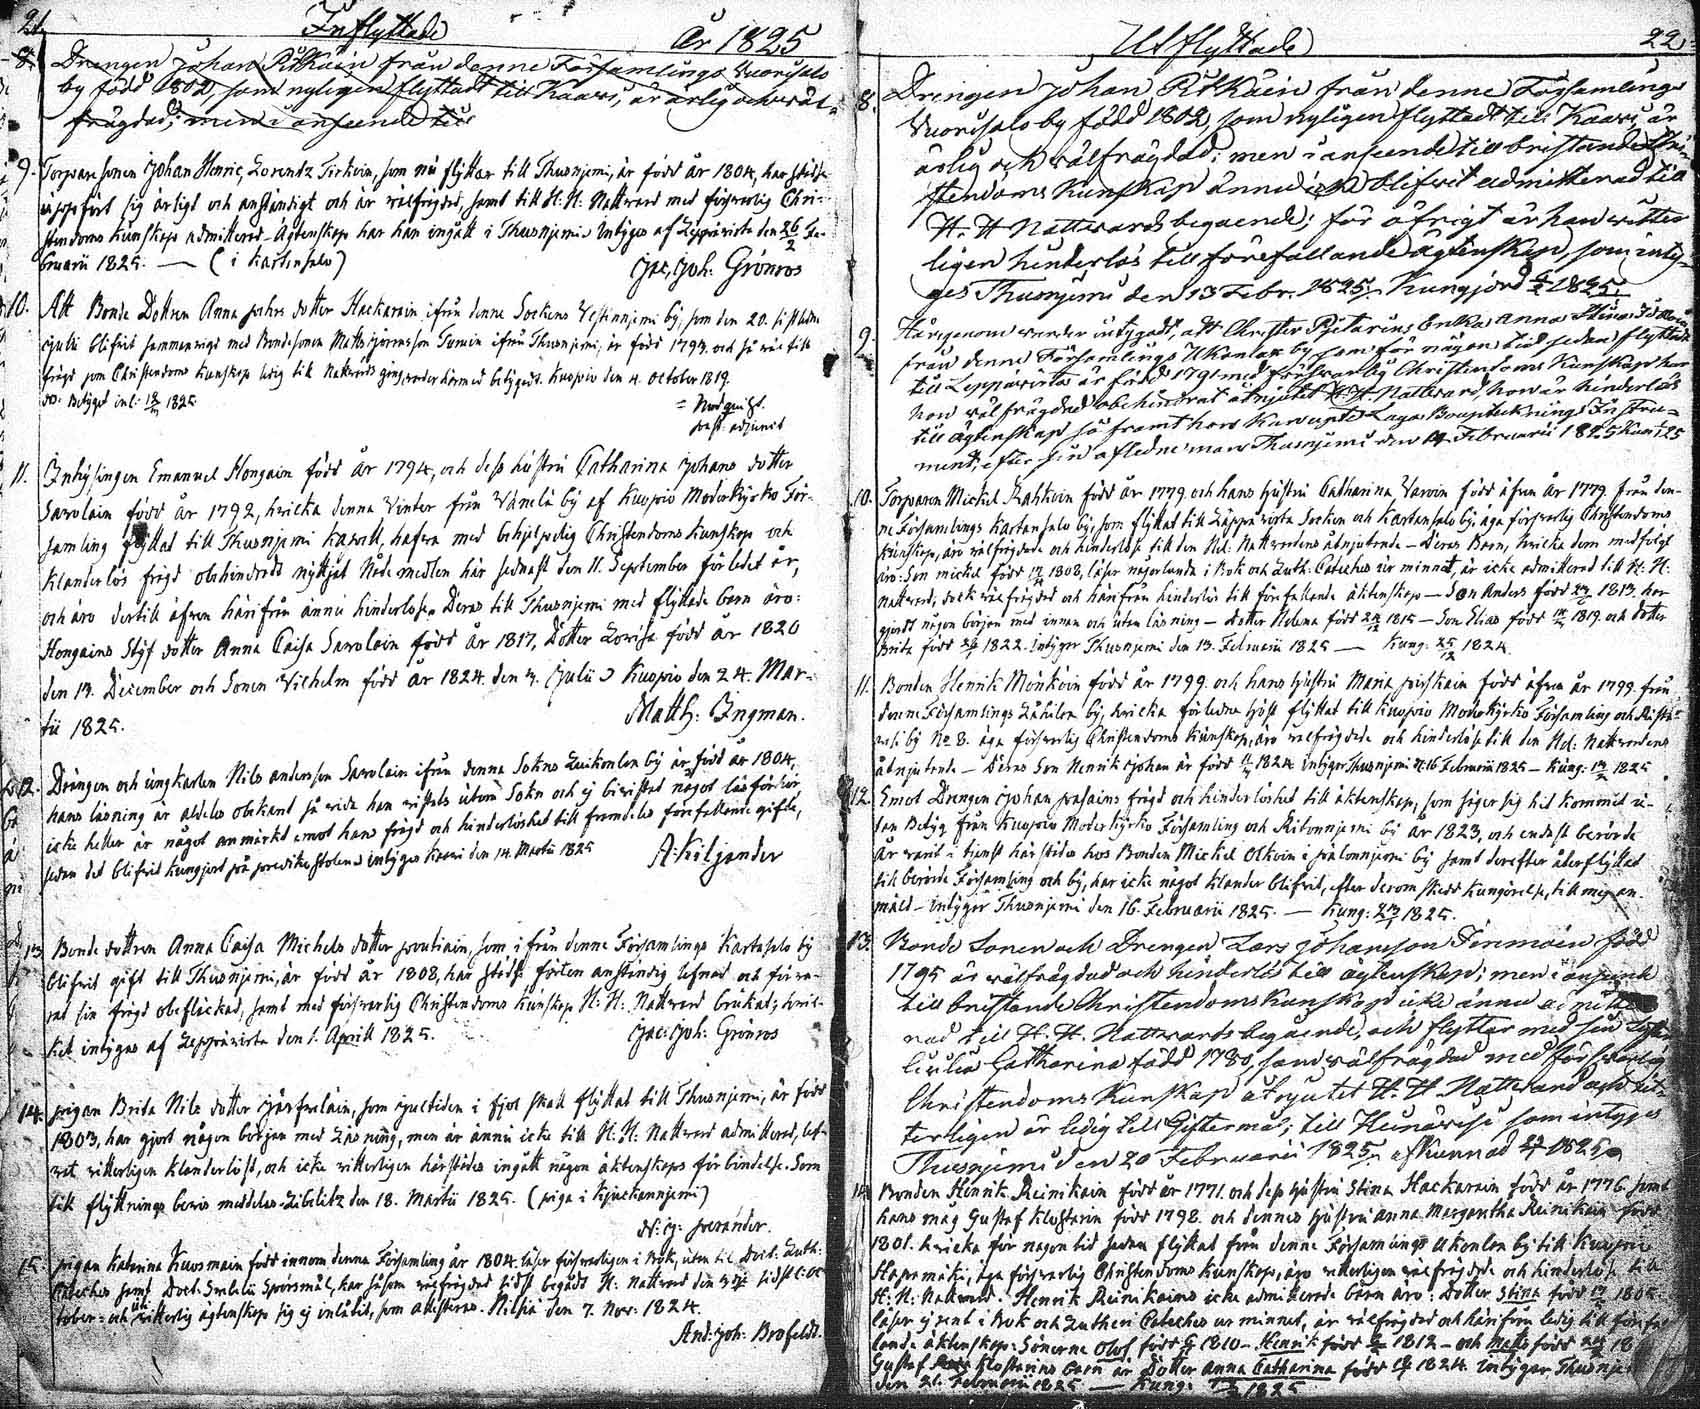 21.
Inflyttade År 1825
8. Drengen Johan Pitkäin från denne Församlings Vuorisalo
by född 1802, som nyligen flyttadt till Kaavi, är ärlig och väl-
frägdad; men i anseende till
9. Torpare sonen Johan Henric Lorentz Tirkoin, som nu flyttar till Thusnjemi, är född år 1804, har städse
uppfört sig ärligt och anständigt och är välfrägdad, samt till H. H. Nattvard med försvarlig Chri-
stendoms kunskap admitterad. Ägtenskap har han ingått i Thusnjemi. Intygas af Leppävirta den 26/2 Fe-
bruarii 1825. — (i Kartinsalo) Jac: Joh: Grönroos
10. Att Bonde Dottren Anna Pehrs dotter Hackarain ifrån denne Sockens Vestinnjemi by, som den 20. sistledne
Julii blifvit sammanvigd med Bondesonen Matts Jöransson Tuovin ifrån Thusnjemi, är född 1793, och så väl till
frägd som Christendoms kunskap ledig till Nattvards gång, varder härmed betygadt. Kuopio den 4. October 1819.
1825.
past: adjunct
11. Inhysingen Emanuel Hongain född år 1794, och dess hustru Catharina Johans dotter
Savolain född år 1792, hvilka denna Vinter från Vämelä by af Kuopio Moderkyrko För-
samling flyttat till Thusnjemi Kapell, hafva med behjelpelig Christendoms kunskap och
klanderlös frägd obehindradt nyttjat Nådemedlen här sednast den 11. September förledet år,
och äro dertill äfven härifrån ännu hinderlöse. Deras till Thusnjemi med flyttade barn äro:
Hongains Styf dotter Anna Caisa Savolain född år 1817, Dotter Lovisa född år 1820
den 13. December och Sonen Vilhelm född år 1824 den 3. Julii. Kuopio den 24. Mar-
tii 1825. Matth: Ingman.
12. Drängen och ungkarlen Nils andersson Savolain ifrån denna Sokns by är född år 1804,
hans läsning är aldeles obekant så vida han vistats utom Sokn och ej bevistat något läsförhör,
icke heller är något anmärkt emot hans frägd och hinderlöshet till framdeles förefallande gifte,
sedan det blifvit kungjort på predikostolen, intygas Kaavi den 14. Martii 1825 A: Kiljander
13. Bonde dottren Anna Caisa Michels dotter Poutiain, som ifrån denne Församlings Kartosalo by
blifvit gift till Thusnjemi, är född år 1808, har städse förten anständig lefnad och förva-
rat sin frägd obefläckad, samt med försvarlig Christendoms kunskap H: H: Nattvard brukat; hvil-
ket intygas af Leppävirta den 1. Aprill 1825. Jac: Joh: Grönroos
14. Pigan Brita Nils dotter som Jultiden i fjol skall flyttat till Thusnjemi, är född
1803, har gjort någon början med Läsning, men är ännu icke till H: H: Nattvard admitterad, lef-
vat vitterligen klanderlöst, och icke vitterligen härstädes ingått någon äktenskaps förbindelse. Som
till flyttnings bevis meddelas. Libelitz den 18. Martii 1825. (piga i Kjuckannjemi)
15. Pigan Katrina Kuosmain född innom denna Församling år 1804, läser försvarligen i Bok, utom till Doct: Luth:
Cateches samt Doct: Svebelii Spörsmål, har såsom välfrägdad sidst begådt H: Nattvard den sidstl: Oc-
tober; och vitterlig ägtenskap sig ej inlåtit, som attesteras. Nilsiä den 7. Nov: 1824.
And: Joh: Brofeldt.
Utflyttade 22.
8. Drengen Johan Pitkäin från denne Församlings
Vuorisalo by född 1802, som nyligen flyttadt till Kaavi, är
ärlig och välfrägdad; men i anseende till bristande Chri-
stendoms Kunskap ännu icke blifvit admitterad till
H. H Nattvards begående; för öfrigt är han vitter-
ligen hinderlös till förefallande ägtenskap, som inty-
gas Thusnjemi den 13 Febr. 1825. Kungjord 1825.
9. Härigenom varder intygadt, att Christer Pitäris Enka Anna Stina
från denne Församlings Ukonlax by, som för någon tid sedan flyttade
till Leppävirta är född 1791 med försvarlig Christendoms Kunskap har
hon välfrägdad obehindrat åtnjutit H. H. Nattvard, hon är hinderlös
till ägtenskap så framt hon Laga Instru-
ment, efter sin afledne man. Thusnjemi den 14 Februarii 1825
10. Torparen Mickel född år 1779. och hans hustru Catharina Varvin född äfven år 1779. från den-
ne Församlings Kartansalo by, som flyttat till Läppävirta Socken och Kartansalo by, äga försvarlig Christendoms
kunskap, äro välfrägdade och hinderlöse till den Hel: Nattvardens åtnjutande — Deras Barn, hvilka dem medfölgt
äro: Son Mickel född 1808, läser någorlunda i Bok och Luth: Cateches ur minnet, är icke admitterad till H: H:
Nattvard, dock välfrägdad och härifrån hinderlös till förefallande äktenskap — Son Anders född 1813. har
gjordt någon början med innan och utan läsning — Dotter Helena född 1815 — Son Elias född 1819. och Dotter
Brita född 1822. Intyger Thusnjemi den 13. Februarii 1825 — Kung: 25/12 1824.
11. Bonden Henrik Mönköin född år 1799. och hans hustru Maria född äfven år 1799. från
denne Församlings by, hvilka förledne höst flyttat till Kuopio Moderkyrko Församling och
by No 8. äga försvarlig Christendoms kunskap, äro välfrägdade och hinderlöse till den Hel: Nattvardens
åtnjutande — Deras Son Henrik Johan är född 1824. intyger Thusnjemi d: 16 Februarii 1825 — Kung: 1825
12. Emot Drengen Johan frägd och hinderlöshet till äktenskap, som säger sig hit kommit u-
tan Betyg från Kuopio Moderkyrko Församling och Ritonnjemi by år 1823, och endast berörde
år varit i tjenst härstädes hos Bonden Mickel Olkoin i by samt derefter återflyttat
till berörde Församling och by, har icke något klander blifvit, efter derom skedd kungörelse, till mig an-
mäld — intyger Thusnjemi den 16. Februarii 1825. — Kung: 1825.
13. Bonde Sonen och Drengen Lars Johansson Tinmain född
1795 är välfrägdad och hinderlös till ägtenskap; men i anseende
till bristande Christendoms kunskap icke ännu admitte-
rad till H. H. Nattvards begående, och flyttar med sin
Catharina född 1780, som välfrägdad med försvarlig
Christendoms Kunskap åtnjutet H. H Nattvard och vit-
terligen är ledig till Giftermål; till som intyges
Thusnjemi den 20 Februarii 1825. afkunnad 1825.
14. Bonden Henrik Reinikain född år 1771. och dess hustru Stina Hackarain född år 1776. samt
hans måg Gustaf Klostarin född 1798. och dennes hustru Anna Margaretha Reinikain född
1801. hvilka för någon tid sedan flyttat från denne Församlings Ukonlax by till Kuopio
Haparmäki, äga försvarlig Christendoms kunskap, äro vitterligen välfrägdade och hinderlöse till
H: H: Nattvard. Henrik Reinikains icke admitterade barn äro: Dotter Stina född 1805.
läser i Bok och Lutheri Cateches ur minnet, är välfrägdad och härifrån ledig till förefal-
lande äktenskap: Sönerne Olof född 1810 — Henrik född 1812 — och Mats född 18
Gustaf Klostarins barn är Dotter Anna Catharina född 1824. Intyger Thusnje
den 21. Februarii 1825 — Kung: 1825